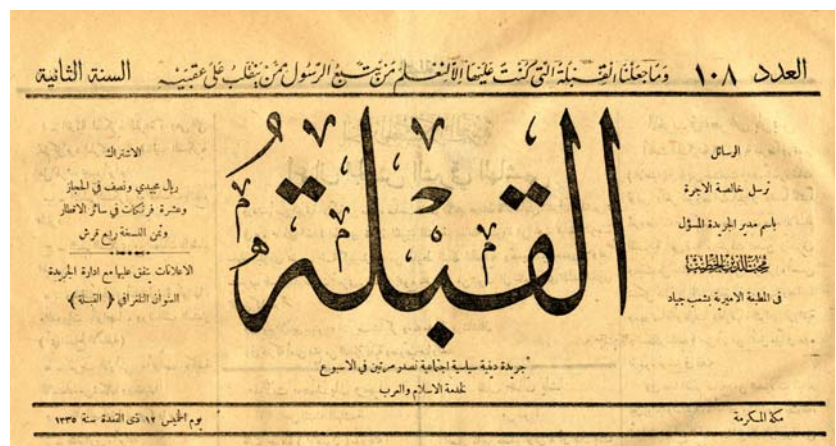 العدد ١٠٨
وَمَا جَعَلْنَا الْقِبْلَةَ الَّتِي كُنْتَ عَلَيْهَا إِلَّا لِنَعْلَمَ مَنْ يَتَّبِعُ الرَّسُولَ مِمَّنْ يَنْقَلِبُ عَلَى عَقِبَيْهِ
السنة الثانية
الرسائل
ترسل خالصة الاجرة
باسم مدير الجريدة المسؤل
محب الدين الخطيب
فى المطبعة الاميرية بشعب جياد
القبلة
جريدة دينية سياسية اجتماعية تصدر مرتين في الاسبوع
لخدمة الاسلام والعرب
الاشتراك
ريال مجيدي ونصف في الحجاز
وعشرة فرنكات في سائر الاقطار
وثمن النسخة ربع قرش
الاعلانات يتفق عليها مع ادارة الجريدة
العنوان التلغرافي ﴿ القبلة ﴾
مكة المكرمة
يوم الخميس ١٢ ذى القعدة سنة ١٣٣٥